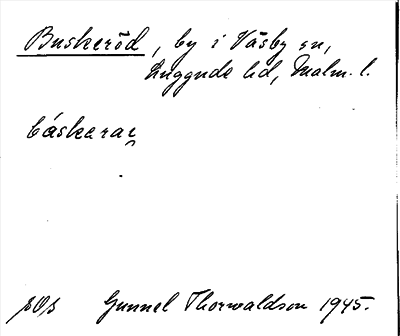 Buskeröd, by i Väsby sn,
Luggude hd, Malm. l.
báskarac̯
sOs Gunnel Thorwaldson 1945.